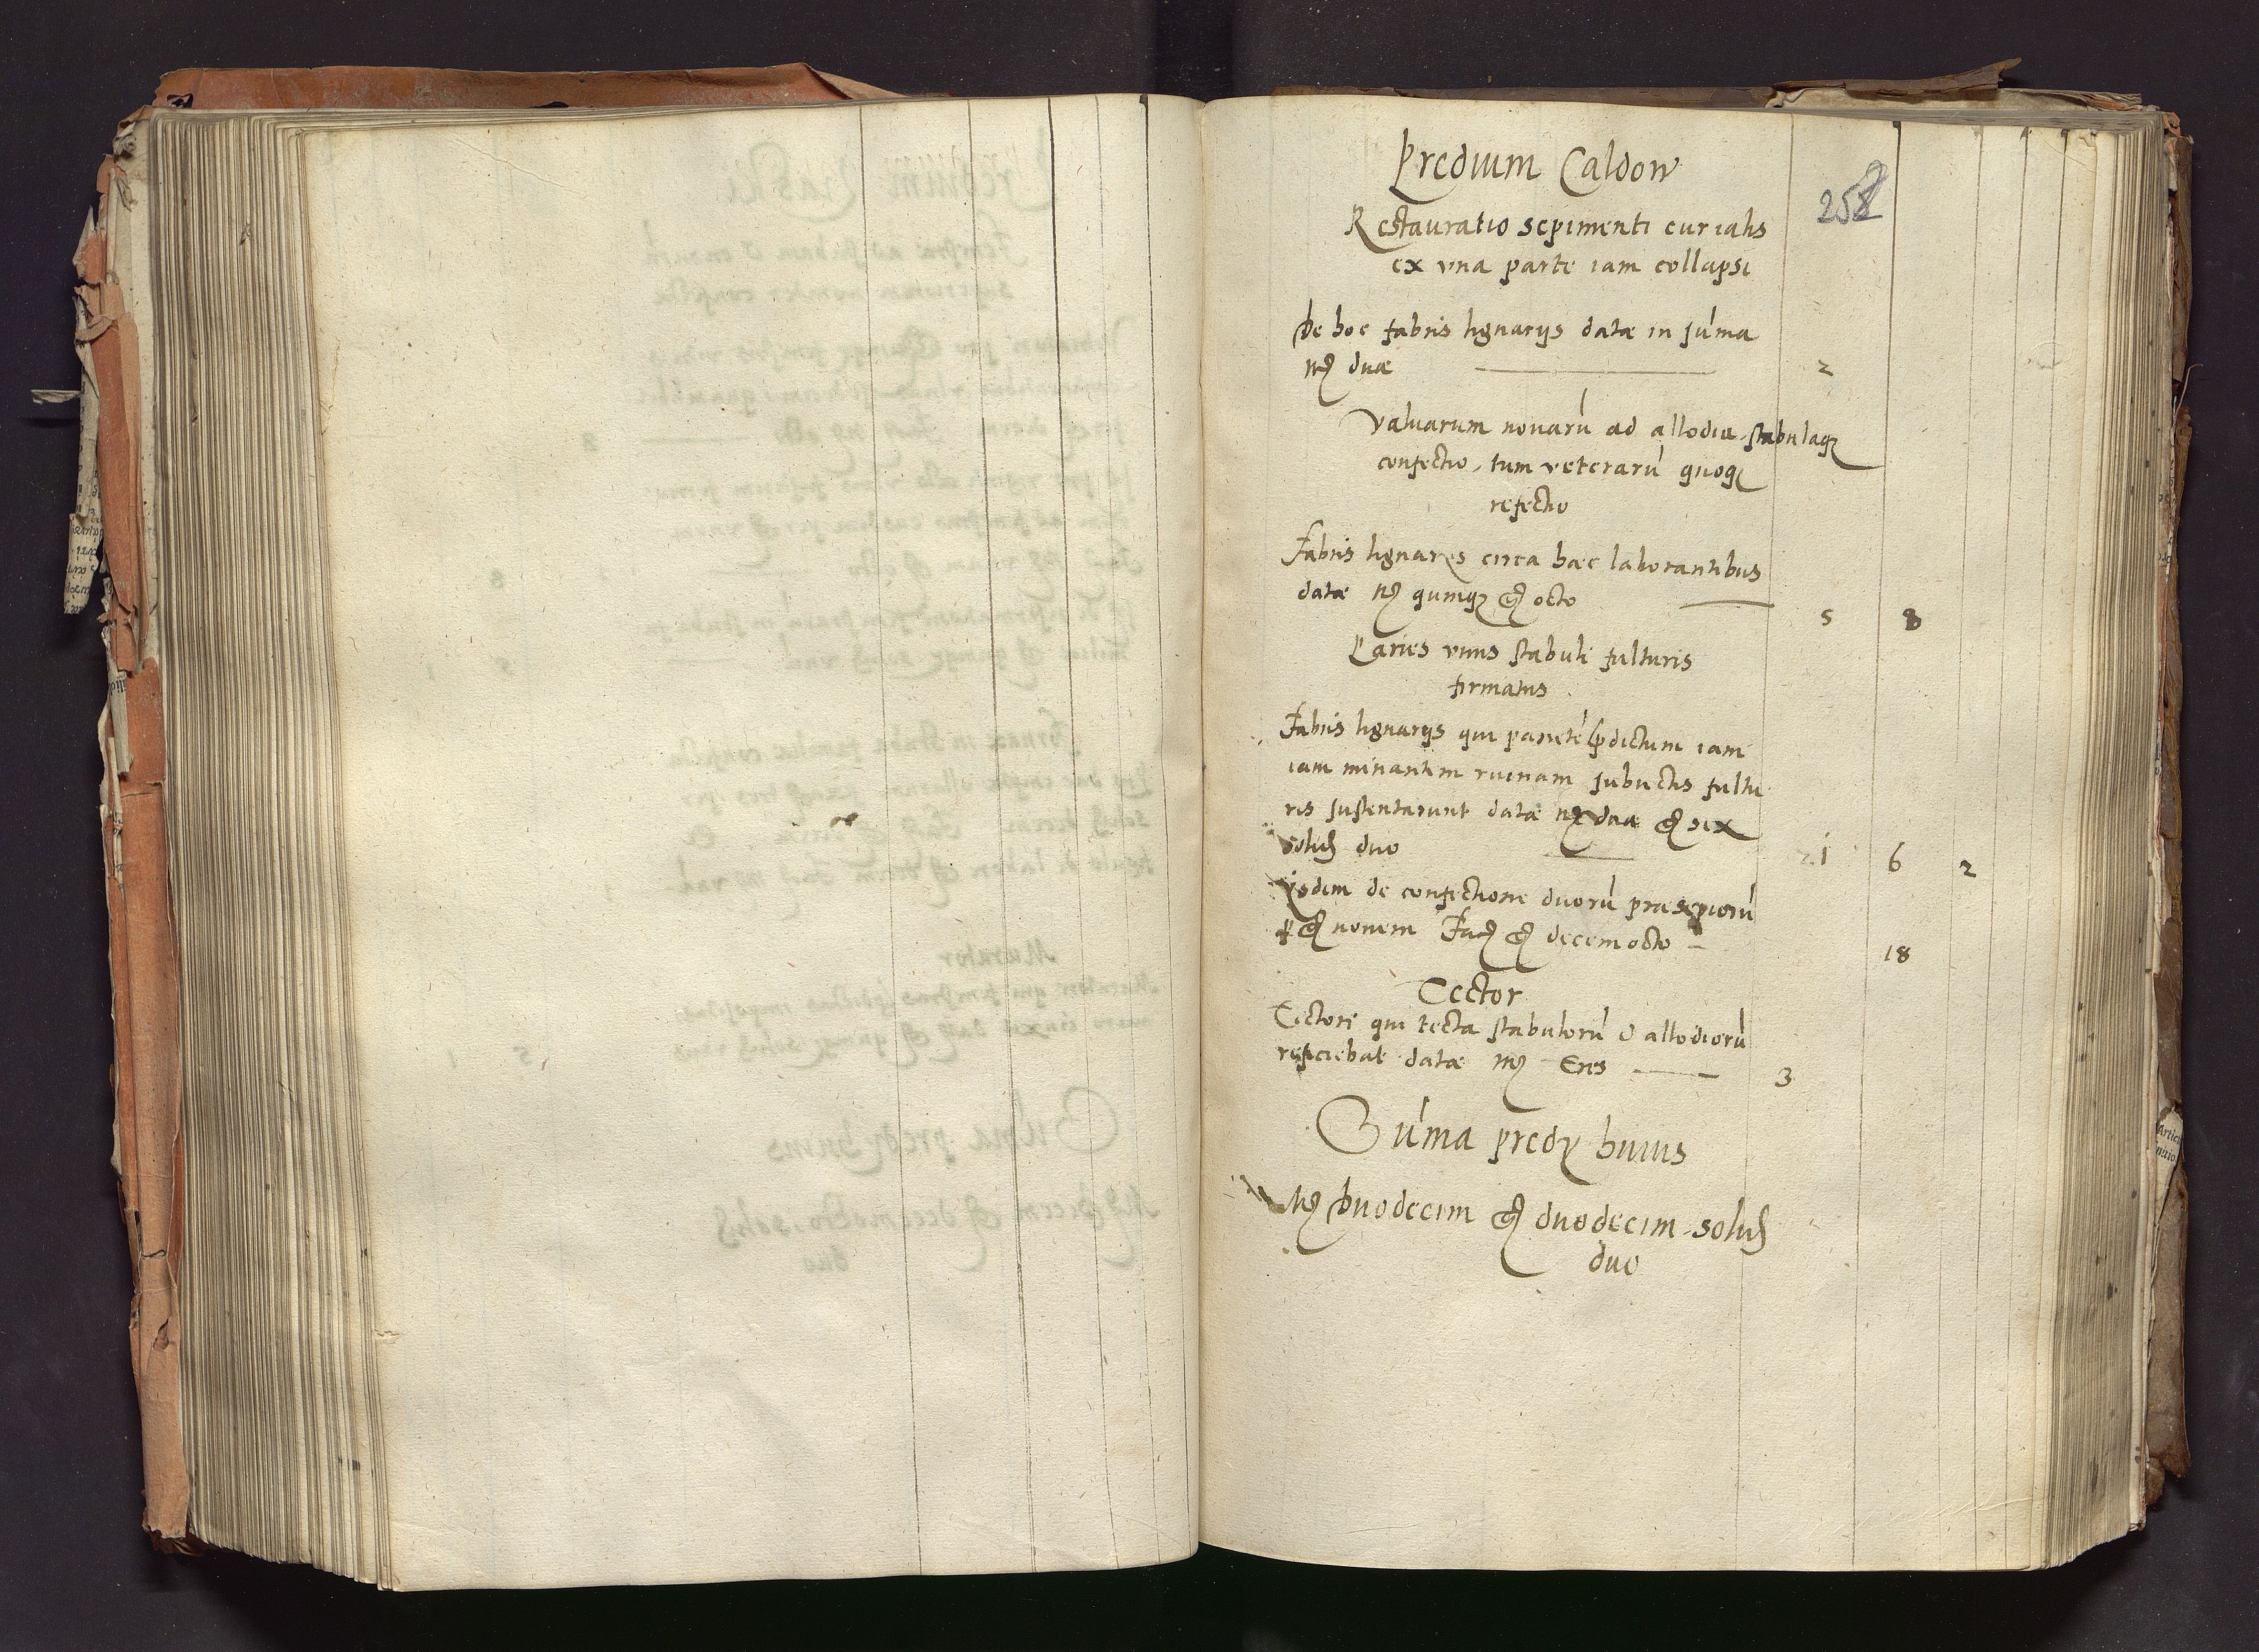 Predium Caldow
258
Restauratio sepimenti curialis
ex vna parte iam collapsi
De hoc fabris lignarijs datæ in sum̄a
mr̃ duæ 2
Valuarum nouarū ad allodia stabulaqz
confectio, tum veterarū quoqz
refectio
Fabris lignarijs circa hæc laborantibus
datæ mr̃ quinqz gr̃ octo 5 8
Paries vnius stabuli fulturis
firmatus
Fabris lignarijs qui parietē p̄dictum iam
iam minantem ruinam subiectis fultu
ris sustentarunt datæ duæ gr̃ sex
solid̃ duo 1 6 2
Ijsdem de confectione duorū præsepiorū
gr̃ nouem Fac̃ gr̃ decemocto 18
Tector
Tectori qui tecta stabulorū & allodiorū
reficiebat datæ mr̃ tres 3
Sum̄a predij huius
Mr̃ duodecim gr̃ duodecim solid̃
duo